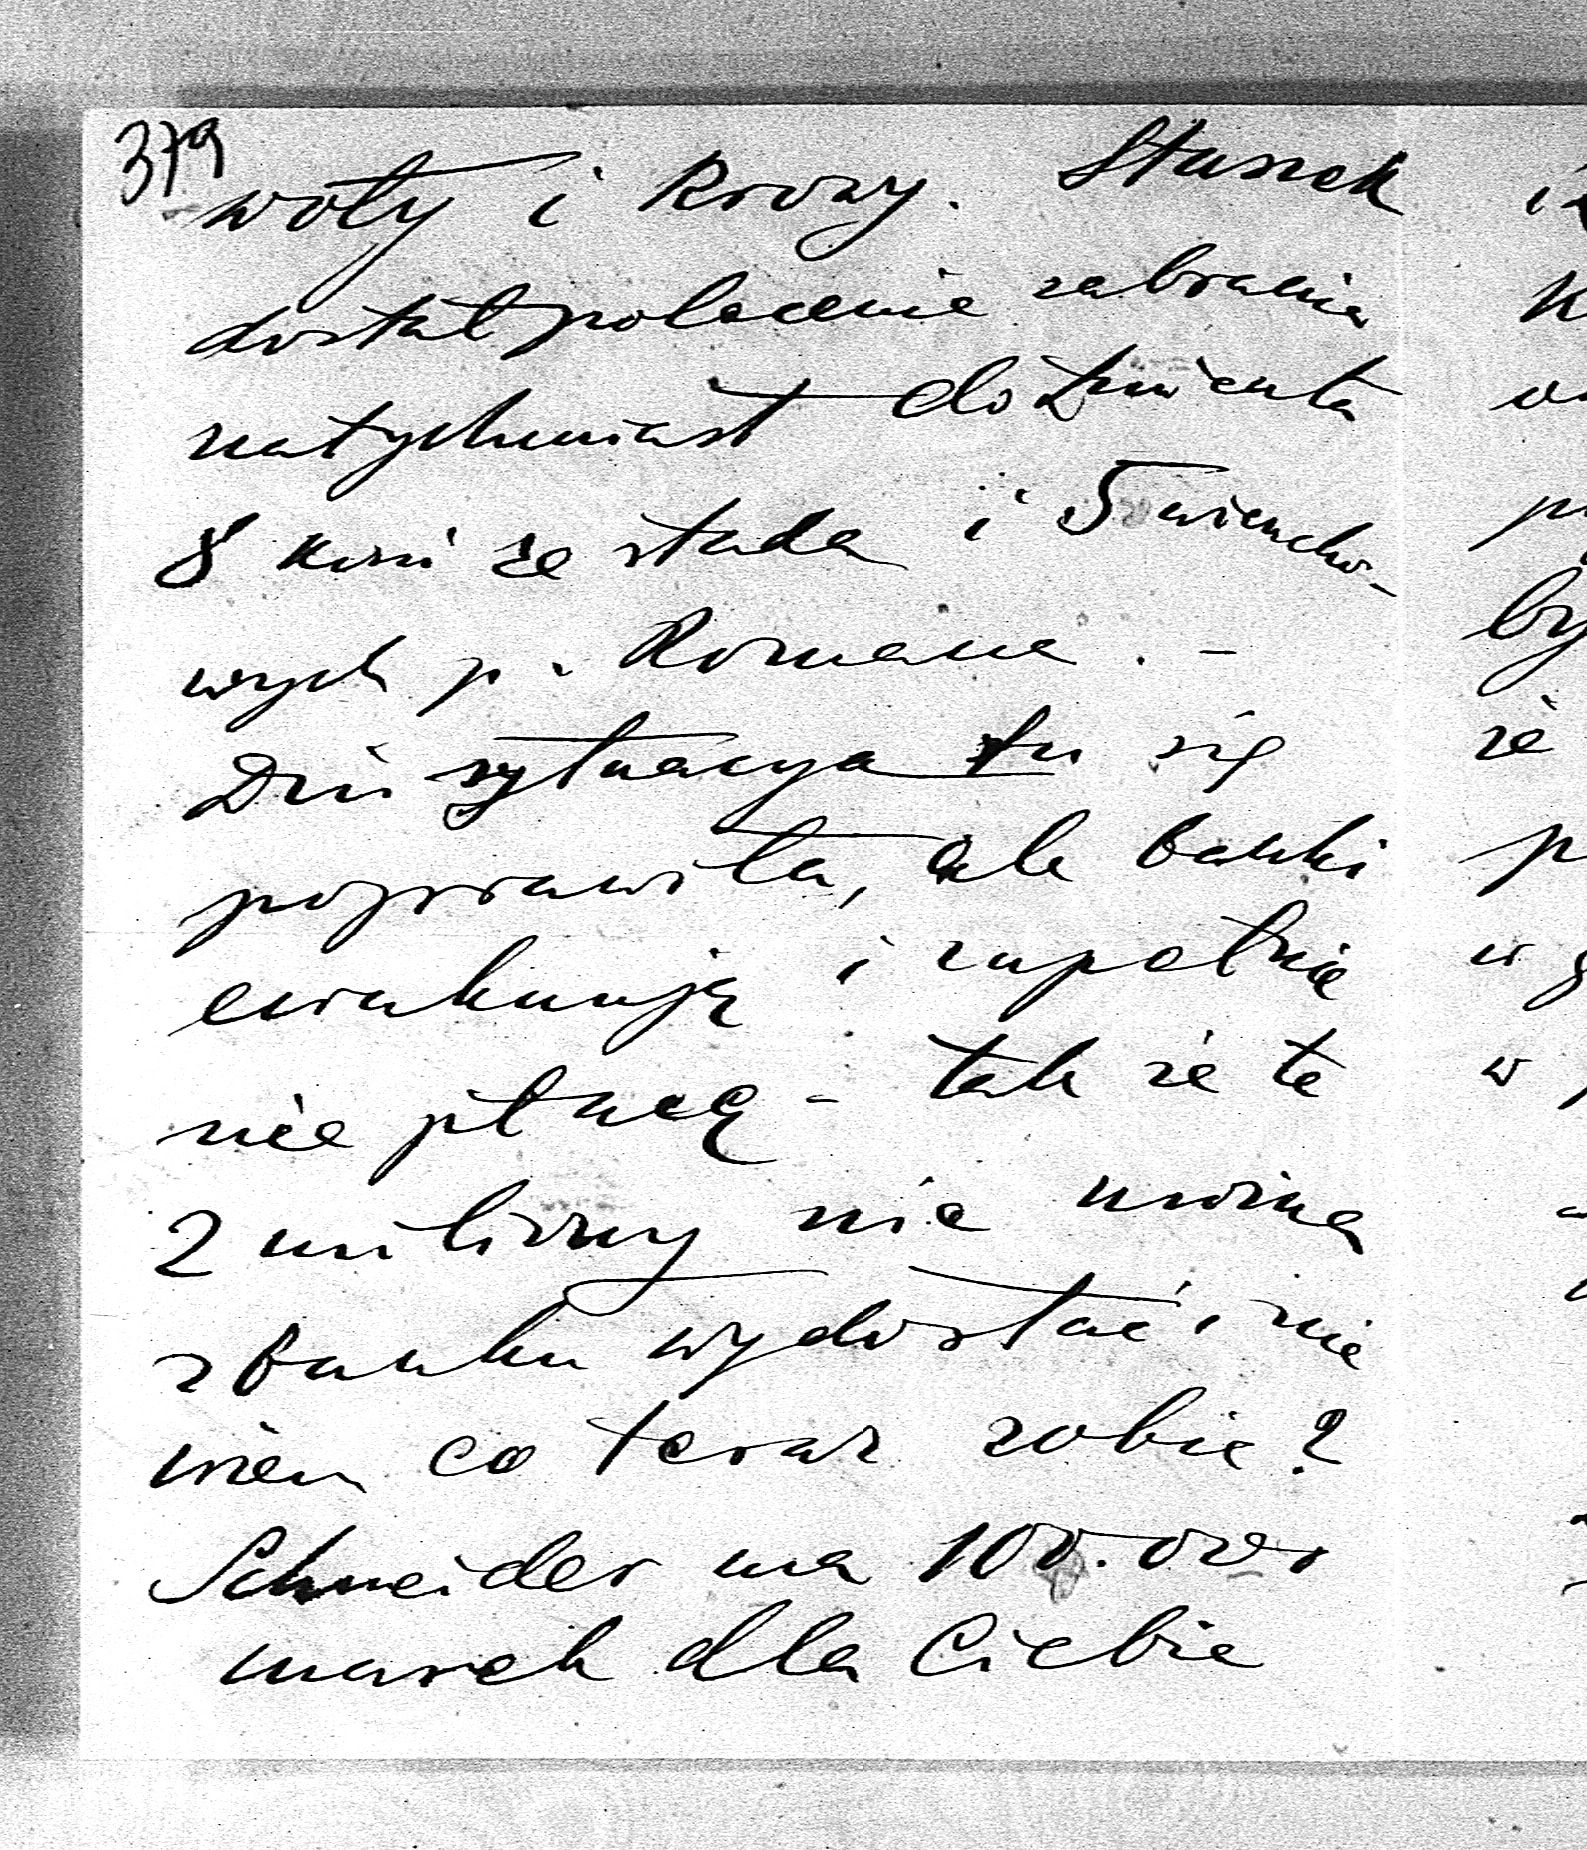 379
woły i krowy. Staszek
dostał polecenie zabrania
natychmiast do Żmienta
8 koni ze stada i 5 wierzcho-
wych p. Romana. -
Dziś sytuacya tu się
poprawiła, ale banki
ewakuują i zupełnie
nie płacą - tak że te
2 miliony nie można
z banku wydostać i nie
wiem co teraz robić?
Schneider ma 100.000
marek dla Ciebie